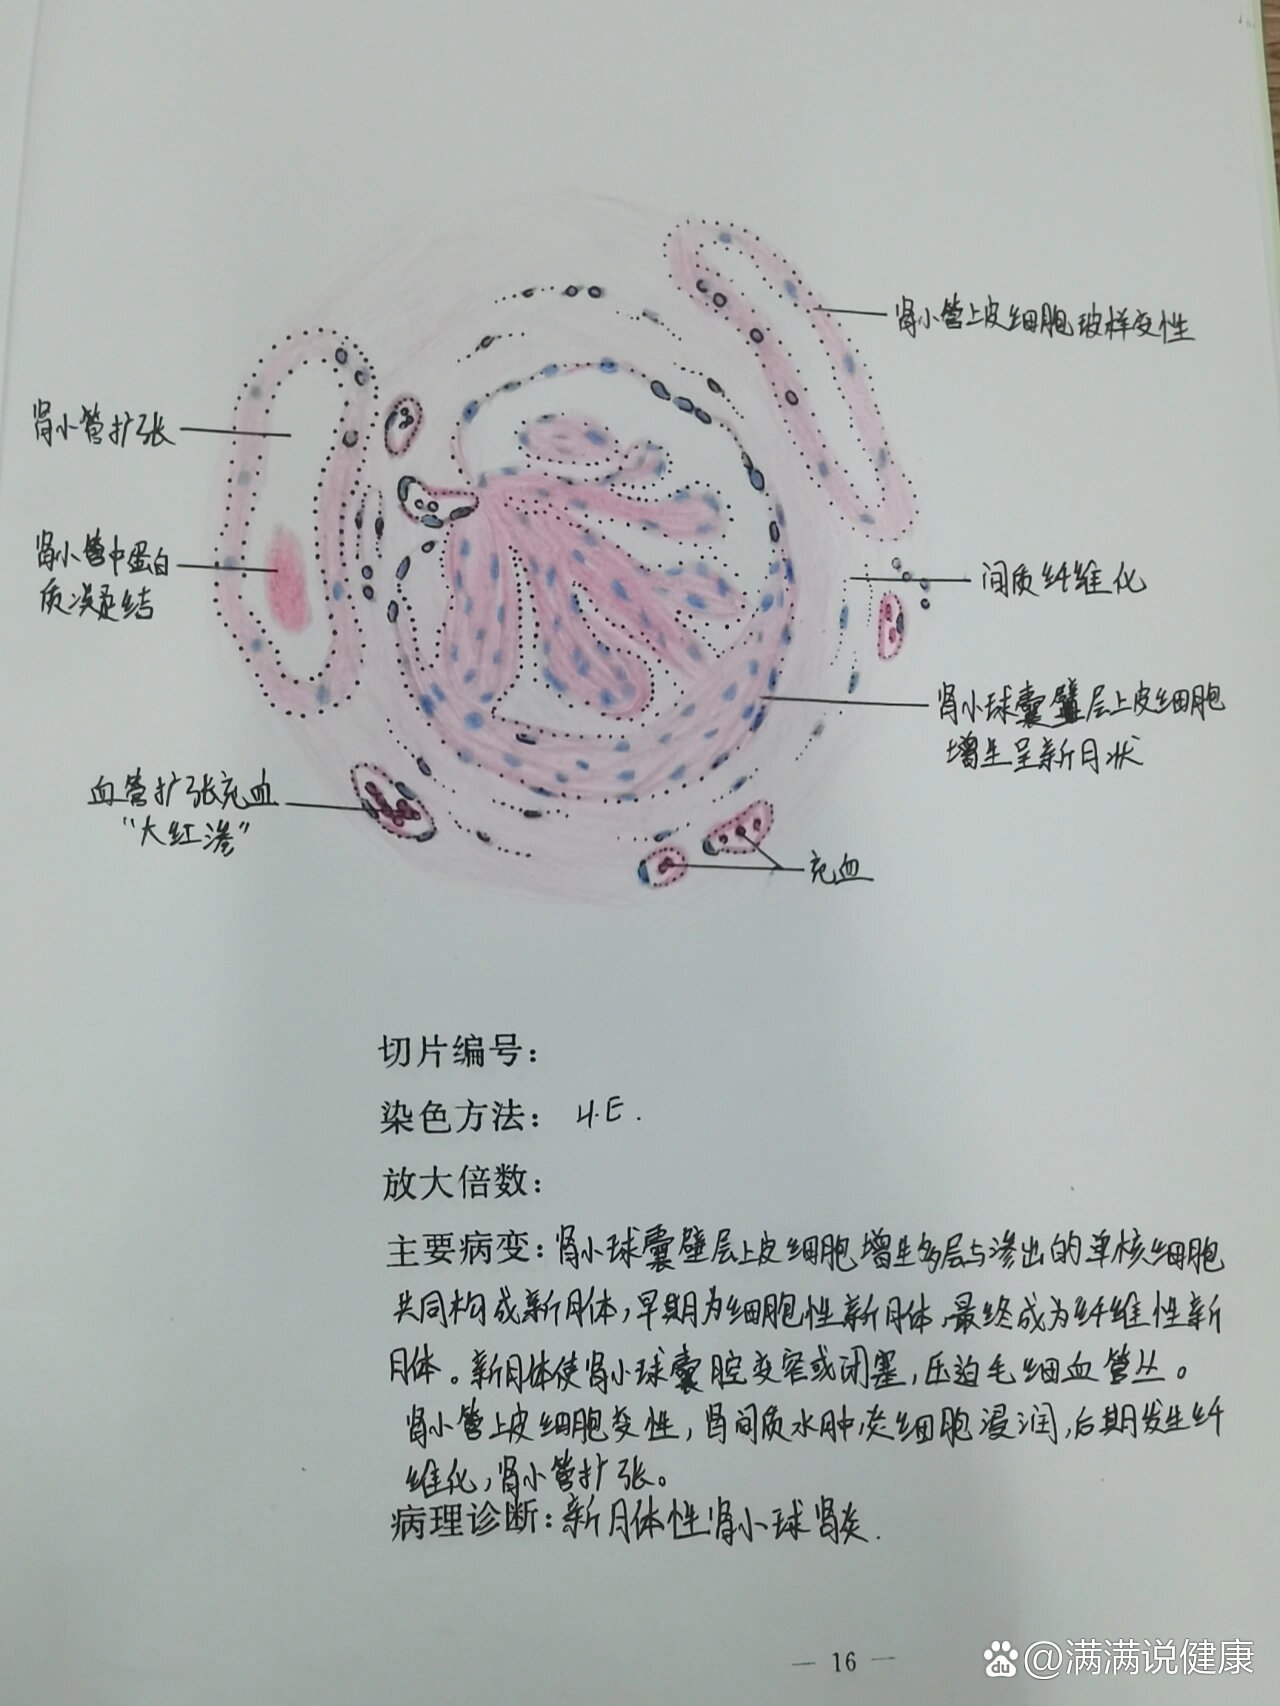 肾小管上皮细胞玻样变性
肾小管扩张
肾小管中蛋白
质凝结
间质纤维化
肾小球囊壁层上皮细胞
增生呈新月状
血管扩张充血
“大红滲”
充血
切片编号：
染色方法：H.E.
放大倍数：
主要病变：肾小球囊壁层上皮细胞增生多层与渗出的单核细胞
共同构成新月体，早期为细胞性新月体，最终成为纤维性新
月体。新月体使肾小球囊腔变窄或闭塞，压迫毛细血管丛。
肾小管上皮细胞变性，肾间质水肿，炎细胞浸润，后期发生纤
维化，肾小管扩张。
病理诊断：新月体性肾小球肾炎.
— 16 —
Baidu @满满说健康